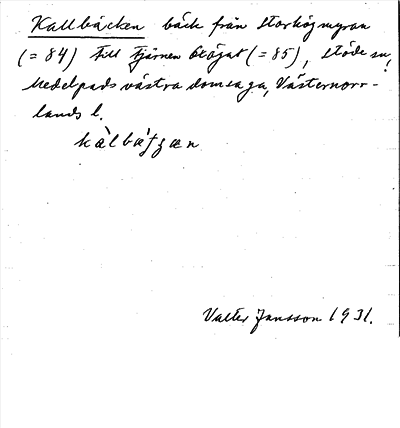 Kallbäcken bäck från Storhögmyran
(= 84) till tjärnen (= 85), Stöde sn,
Medelpads västra domsaga, Västernorr-
lands l.
Valter Jansson 1931.